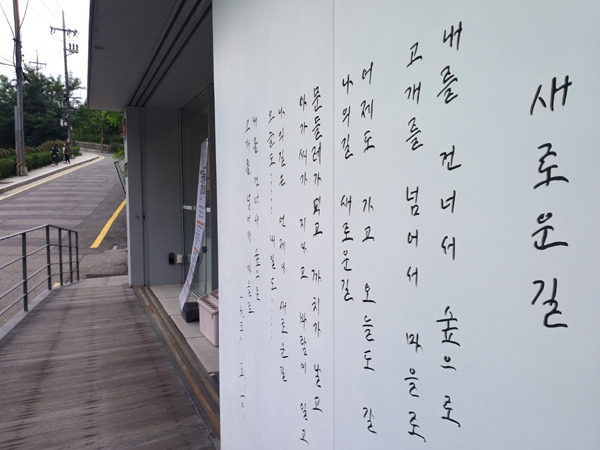 새로운길
내를 건너서 숲으로
고개를 넘어서 마을로
어제도 가고 오늘도 갈
나의길 새로운길
문들레가 피고 까치가 날고
아가씨가 지나고 바람이 일고
나의길은 언제나 새로운길
오늘도…… 내일도……
내를 건너서 숲으로
고개를 넘어서 마을로